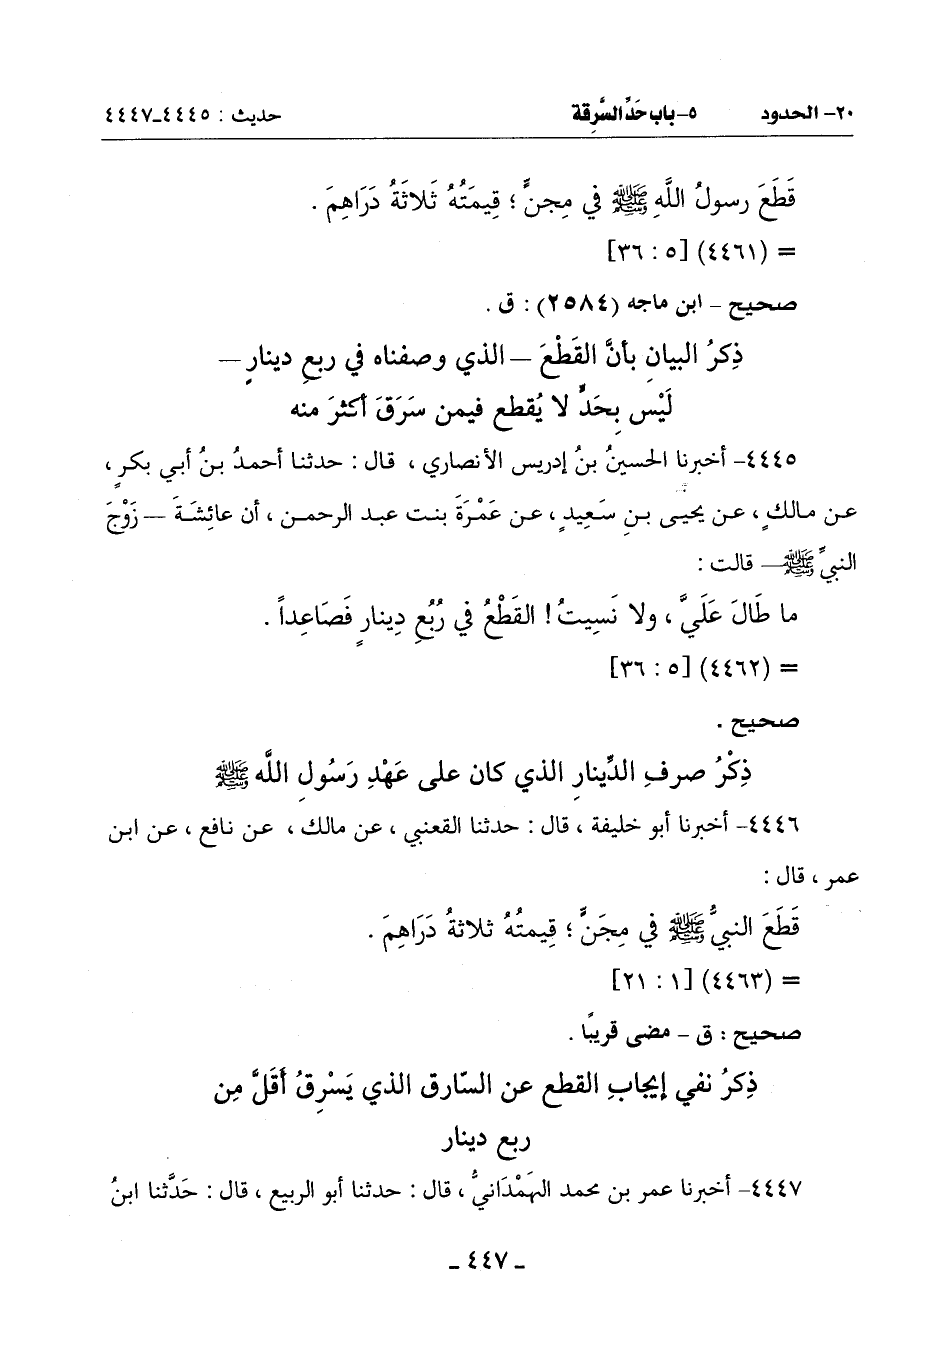 ٢٠- الحدود ٥- باب حَدِّ السَّرِقة حديث : ٤٤٤٥-٤٤٤٧
قَطَعَ رسولُ اللَّهِ ﷺ في مِجنٍّ ؛ قِيمَتُهُ ثَلاثَةُ دَرَاهِمَ .
= (٤٤٦١) [٥ : ٣٦]
صحيح - ابن ماجه (٢٥٨٤) : ق .
ذِكرُ البيانِ بأنَّ القَطْعَ – الذي وصفناه في ربعِ دينارٍ –
لَيْسِ بِحَدٍّ لا يُقطع فيمن سَرَقَ أكثرَ منه
٤٤٤٥- أخبرنا الحسينُ بنُ إدريس الأنصاري ، قال : حدثنا أحمدُ بنُ أبي بكرٍ ،
عن مالكٍ ، عن يحيى بنِ سَعِيدٍ ، عن عَمْرَةَ بنت عبد الرحمن ، أن عائِشَةَ – زَوْجَ
النبيِّ ﷺ – قالت :
ما طَالَ عَلَيَّ ، ولا نَسِيتُ ! القَطْعُ في رُبُعِ دِينارٍ فَصَاعِداً .
= (٤٤٦٢) [٥ : ٣٦]
صحيح .
ذِكْرُ صرفِ الدِّينارِ الذي كان على عَهْدِ رَسُولِ اللَّه ﷺ
٤٤٤٦- أخبرنا أبو خليفة ، قال : حدثنا القعنبي ، عن مالك ، عن نافع ، عن ابن
عمر ، قال :
قَطَعَ النبيُّ ﷺ في مِجَنٍّ ؛ قِيمتُهُ ثلاثةُ دَرَاهِمَ .
= (٤٤٦٣) [١ : ٢١]
صحيح : ق - مضى قريبًا .
ذِكرُ نفي إيجابِ القطع عن السّارق الذي يَسْرِقُ أقَلَّ مِن
ربع دينار
٤٤٤٧- أخبرنا عمر بن محمد الهَمْدَانيُّ ، قال : حدثنا أبو الربيع ، قال : حَدَّثنا ابنُ
- ٤٤٧ -